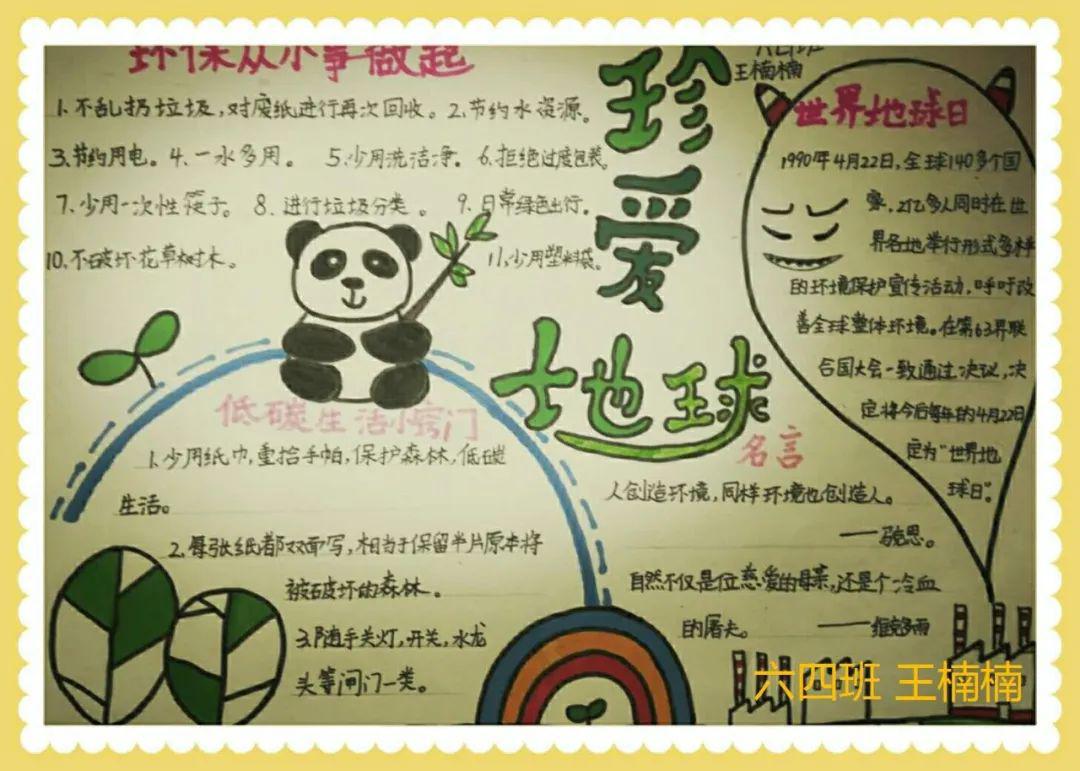 环保从小事做起
1.不乱扔垃圾,对废纸进行再次回收。2.节约水资源。
3.节约用电。4.一水多用。 5.少用洗洁净。6.拒绝过度包装。
7.少用一次性筷子。8.进行垃圾分类。 9.日常绿色出行。
10.不破坏花草树木。 11.少用塑料袋。
珍爱
地球
六四班
王楠楠
世界地球日
1990年4月22日,全球140多个国
家,2亿多人同时在世
界各地举行形式多样
的环境保护宣传活动,呼吁改
善全球整体环境。在第63界联
合国大会一致通过决议,决
定将今后每年的4月22日
定为“世界地
球日”。
低碳生活小窍门
1.少用纸巾,重拾手帕,保护森林,低碳
生活。
2.每张纸都双面写,相当于保留半片原本将
被破坏的森林。
3.随手关灯,开关,水龙
头等闸门一类。
名言
人创造环境,同样环境也创造人。
——马克思。
自然不仅是位慈爱的母亲,还是个冷血
的屠夫。 ——维克多雨
六四班 王楠楠